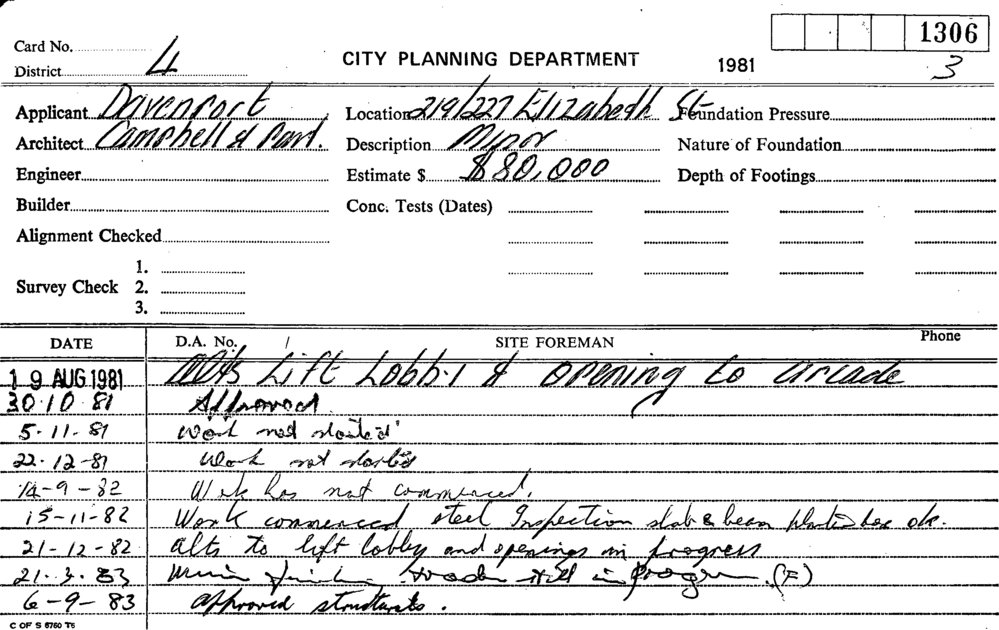 1306
Card No.
CITY PLANNING DEPARTMENT 1981 3
District 4
Applicant Davenport Location 219/227 Elizabeth St Foundation Pressure
Architect Campbell & Description Minor Nature of Foundation
Engineer Estimate $ $80,000 Depth of Footings
Builder Conc. Tests (Dates)
Alignment Checked
1.
Survey Check 2.
3.
DATE D.A. No. SITE FOREMAN Phone
19 AUG 1981 Alts Lift Lobby & opening to arcade
30.10.81 Approved
5-11-81 Work not started
22.12-81 Work not started
14-9-82 Work has not commenced.
15-11-82 Work commenced steel Inspection slab & beam ok.
21-12-82 Alts to lift lobby and openings in progress
21.3.83 still in progress (F)
6-9-83 approved structurals.
C OF S 6760 T5